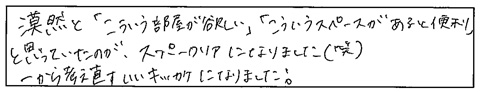 漠然と「こういう部屋が欲しい」「こういうスペースがあると便利」
と思っていたのが、スゴークリアになりました(笑)
一から考え直すいいキッカケになりました。